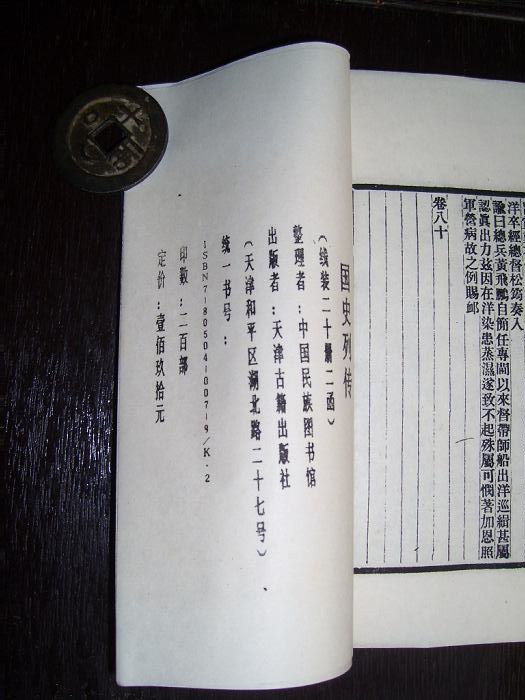 洋卒經總督松筠奏入
諭曰總兵黃飛鵬自簡任專閫以來督帶師船出洋巡緝甚屬
認眞出力茲因在洋染患蒸濕遂致不起殊屬可憫著加恩照
軍營病故之例賜衈
卷八十
國史列传
(线装二十册二函)
整理者:中国民族图书馆
出版者:天津古籍出版社
(天津和平区湖北路二十七号)
统一书号:
ISBN7-80504-007-9/K·2
印数:二百部
定价:壹佰玖拾元